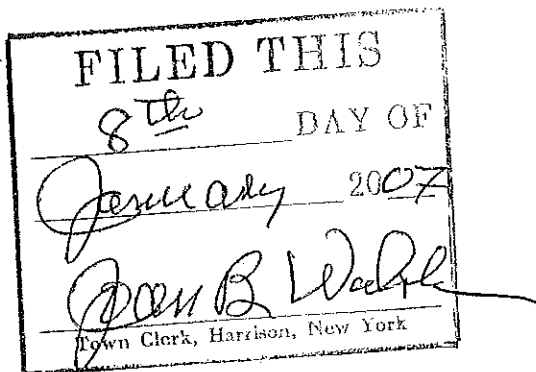 FILED THIS
8th DAY OF
January 2007
Joan B Walsh
Town Clerk, Harrison, New York